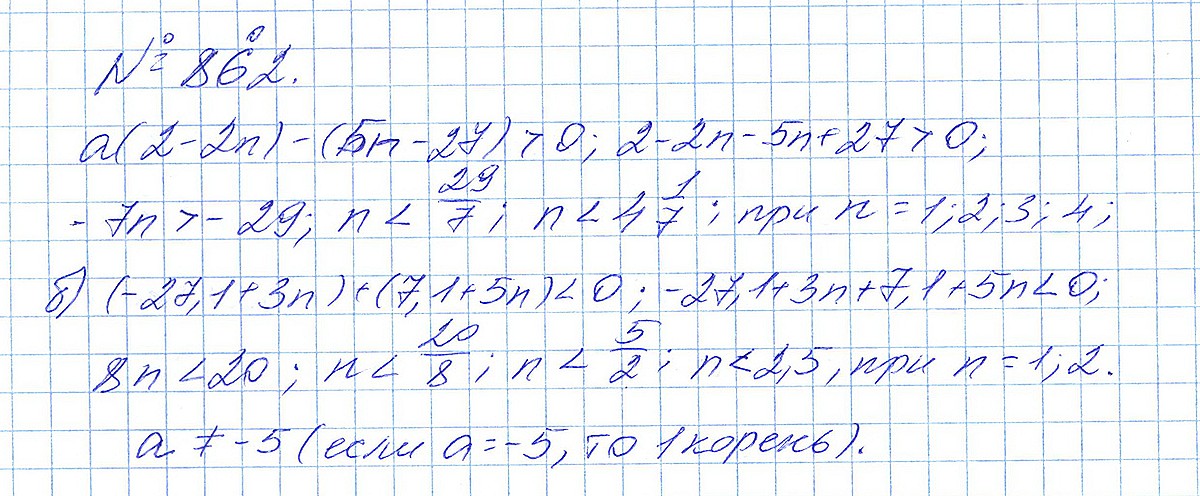 № 862.
а(2-2n)-(5n-27)>0; 2-2n-5n+27>0;
-7n>-29; n<29/7; n<4 1/7; при n=1;2;3;4;
б) (-27,1+3n)+(7,1+5n)<0; -27,1+3n+7,1+5n<0;
8n<20; n<20/8; n<5/2; n<2,5, при n=1;2.
a≠-5 (если a=-5, то 1 корень).